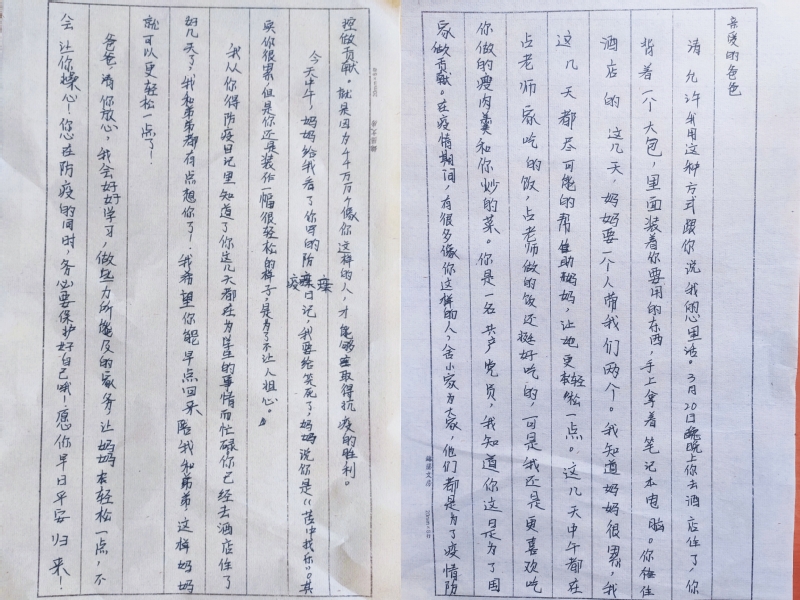 亲爱的爸爸
请允许我用这种方式跟你说我的心里话。3月20日晚上你去酒店住了，你
背着一个大包，里面装着你要用的东西，手上拿着笔记本电脑。你住在
酒店的这几天，妈妈要一个人带我们两个。我知道妈妈很累，我
这几天都尽可能的帮助妈妈，让她更轻松一点。这几天中午都在
占老师家吃的饭，占老师做的饭还挺好吃的，可是我还是更喜欢吃
你做的瘦肉羹和你炒的菜。你是一名共产党员，我知道你这是为了国
家做贡献。在疫情期间，有很多像你这样的人，舍小家为大家，他们都是为了疫情防
控做贡献。就是因为千千万万个像你这样的人，才能够取得抗疫的胜利。
今天中午，妈妈给我看了你写的防疫日记，我要给笑死了，妈妈说你是“苦中找乐”。其
实你很累，但是你还是装作一幅很轻松的样子，是为了不让人担心。
我从你得防疫日记里知道了你这几天都在为学生的事情而忙碌你已经去酒店住了
好几天了，我和弟弟都有点想你了！我希望你能早点回来陪我和弟弟这样妈妈
就可以更轻松一点了！
爸爸，请你放心，我会好好学习，做些力所能及的家务让妈妈轻松一点，不
会让你操心！您在防疫的同时，务必要保护好自己哦！愿你早日平安归来！